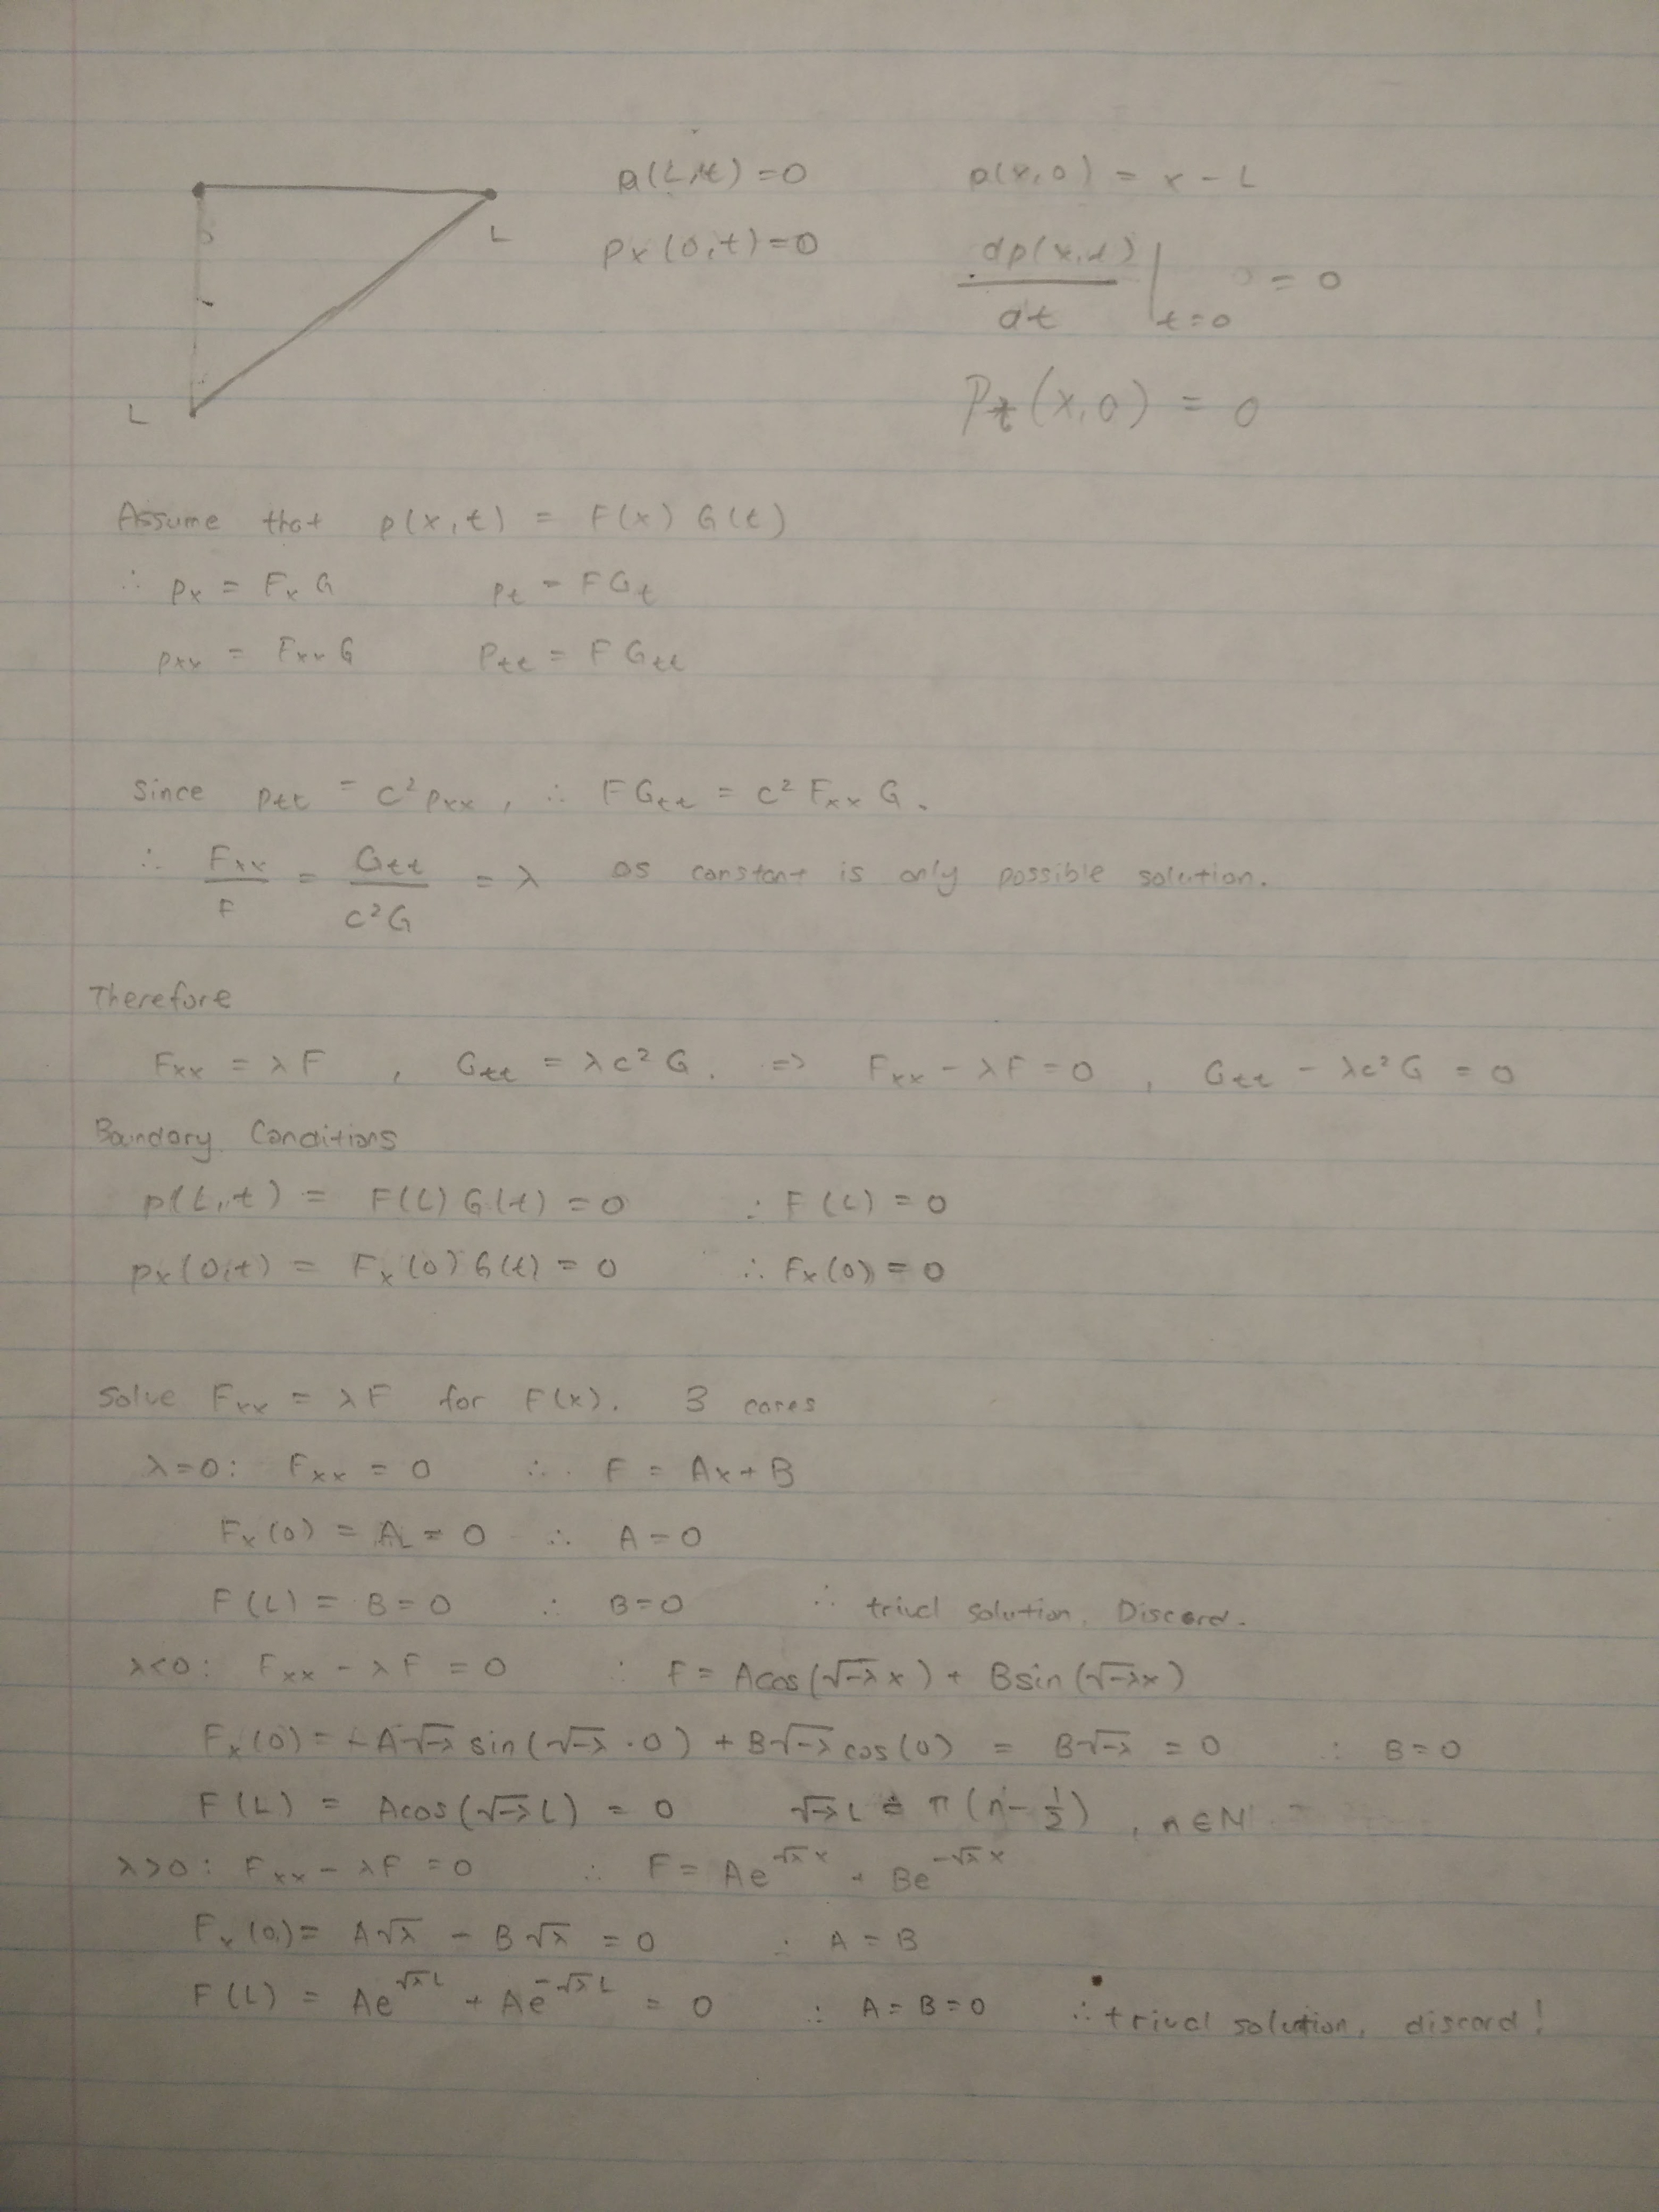 p(L,t) = 0    p(x,0) = x - L
L    px(0,t) = 0    dp(x,t)/dt |t=0 = 0
L    Pt(x,0) = 0
Assume that p(x,t) = F(x) G(t)
∴ px = Fx G    pt = FGt
pxx = Fxx G    Ptt = F Gtt
Since ptt = c² pxx, ∴ FGtt = c² Fxx G.
∴ Fxx/F = Gtt/c²G = λ as constant is only possible solution.
Therefore
Fxx = λF , Gtt = λc²G. => Fxx - λF = 0 , Gtt - λc²G = 0
Boundary Conditions
p(L,t) = F(L) G(t) = 0    ∴ F(L) = 0
px(0,t) = Fx(0) G(t) = 0    ∴ Fx(0) = 0
Solve Fxx = λF for F(x). 3 cases
λ=0: Fxx = 0    ∴ F = Ax + B
Fx(0) = A = 0    ∴ A = 0
F(L) = B = 0    ∴ B=0    ∴ trivcl solution. Discard.
λ<0: Fxx - λF = 0    ∴ F = Acos(√-λ x) + Bsin(√-λx)
Fx(0) = -A√-λ sin(√-λ · 0) + B√-λ cos(0) = B√-λ = 0    ∴ B=0
F(L) = Acos(√-λ L) = 0    √-λ L = π(n - 1/2) , n ∈ N
λ>0: Fxx - λF = 0    ∴ F = Ae^√λ x + Be^-√λ x
Fx(0) = A√λ - B√λ = 0    ∴ A = B
F(L) = Ae^√λ L + Ae^-√λ L = 0    ∴ A = B = 0    ∴ trivcl solution, discard!